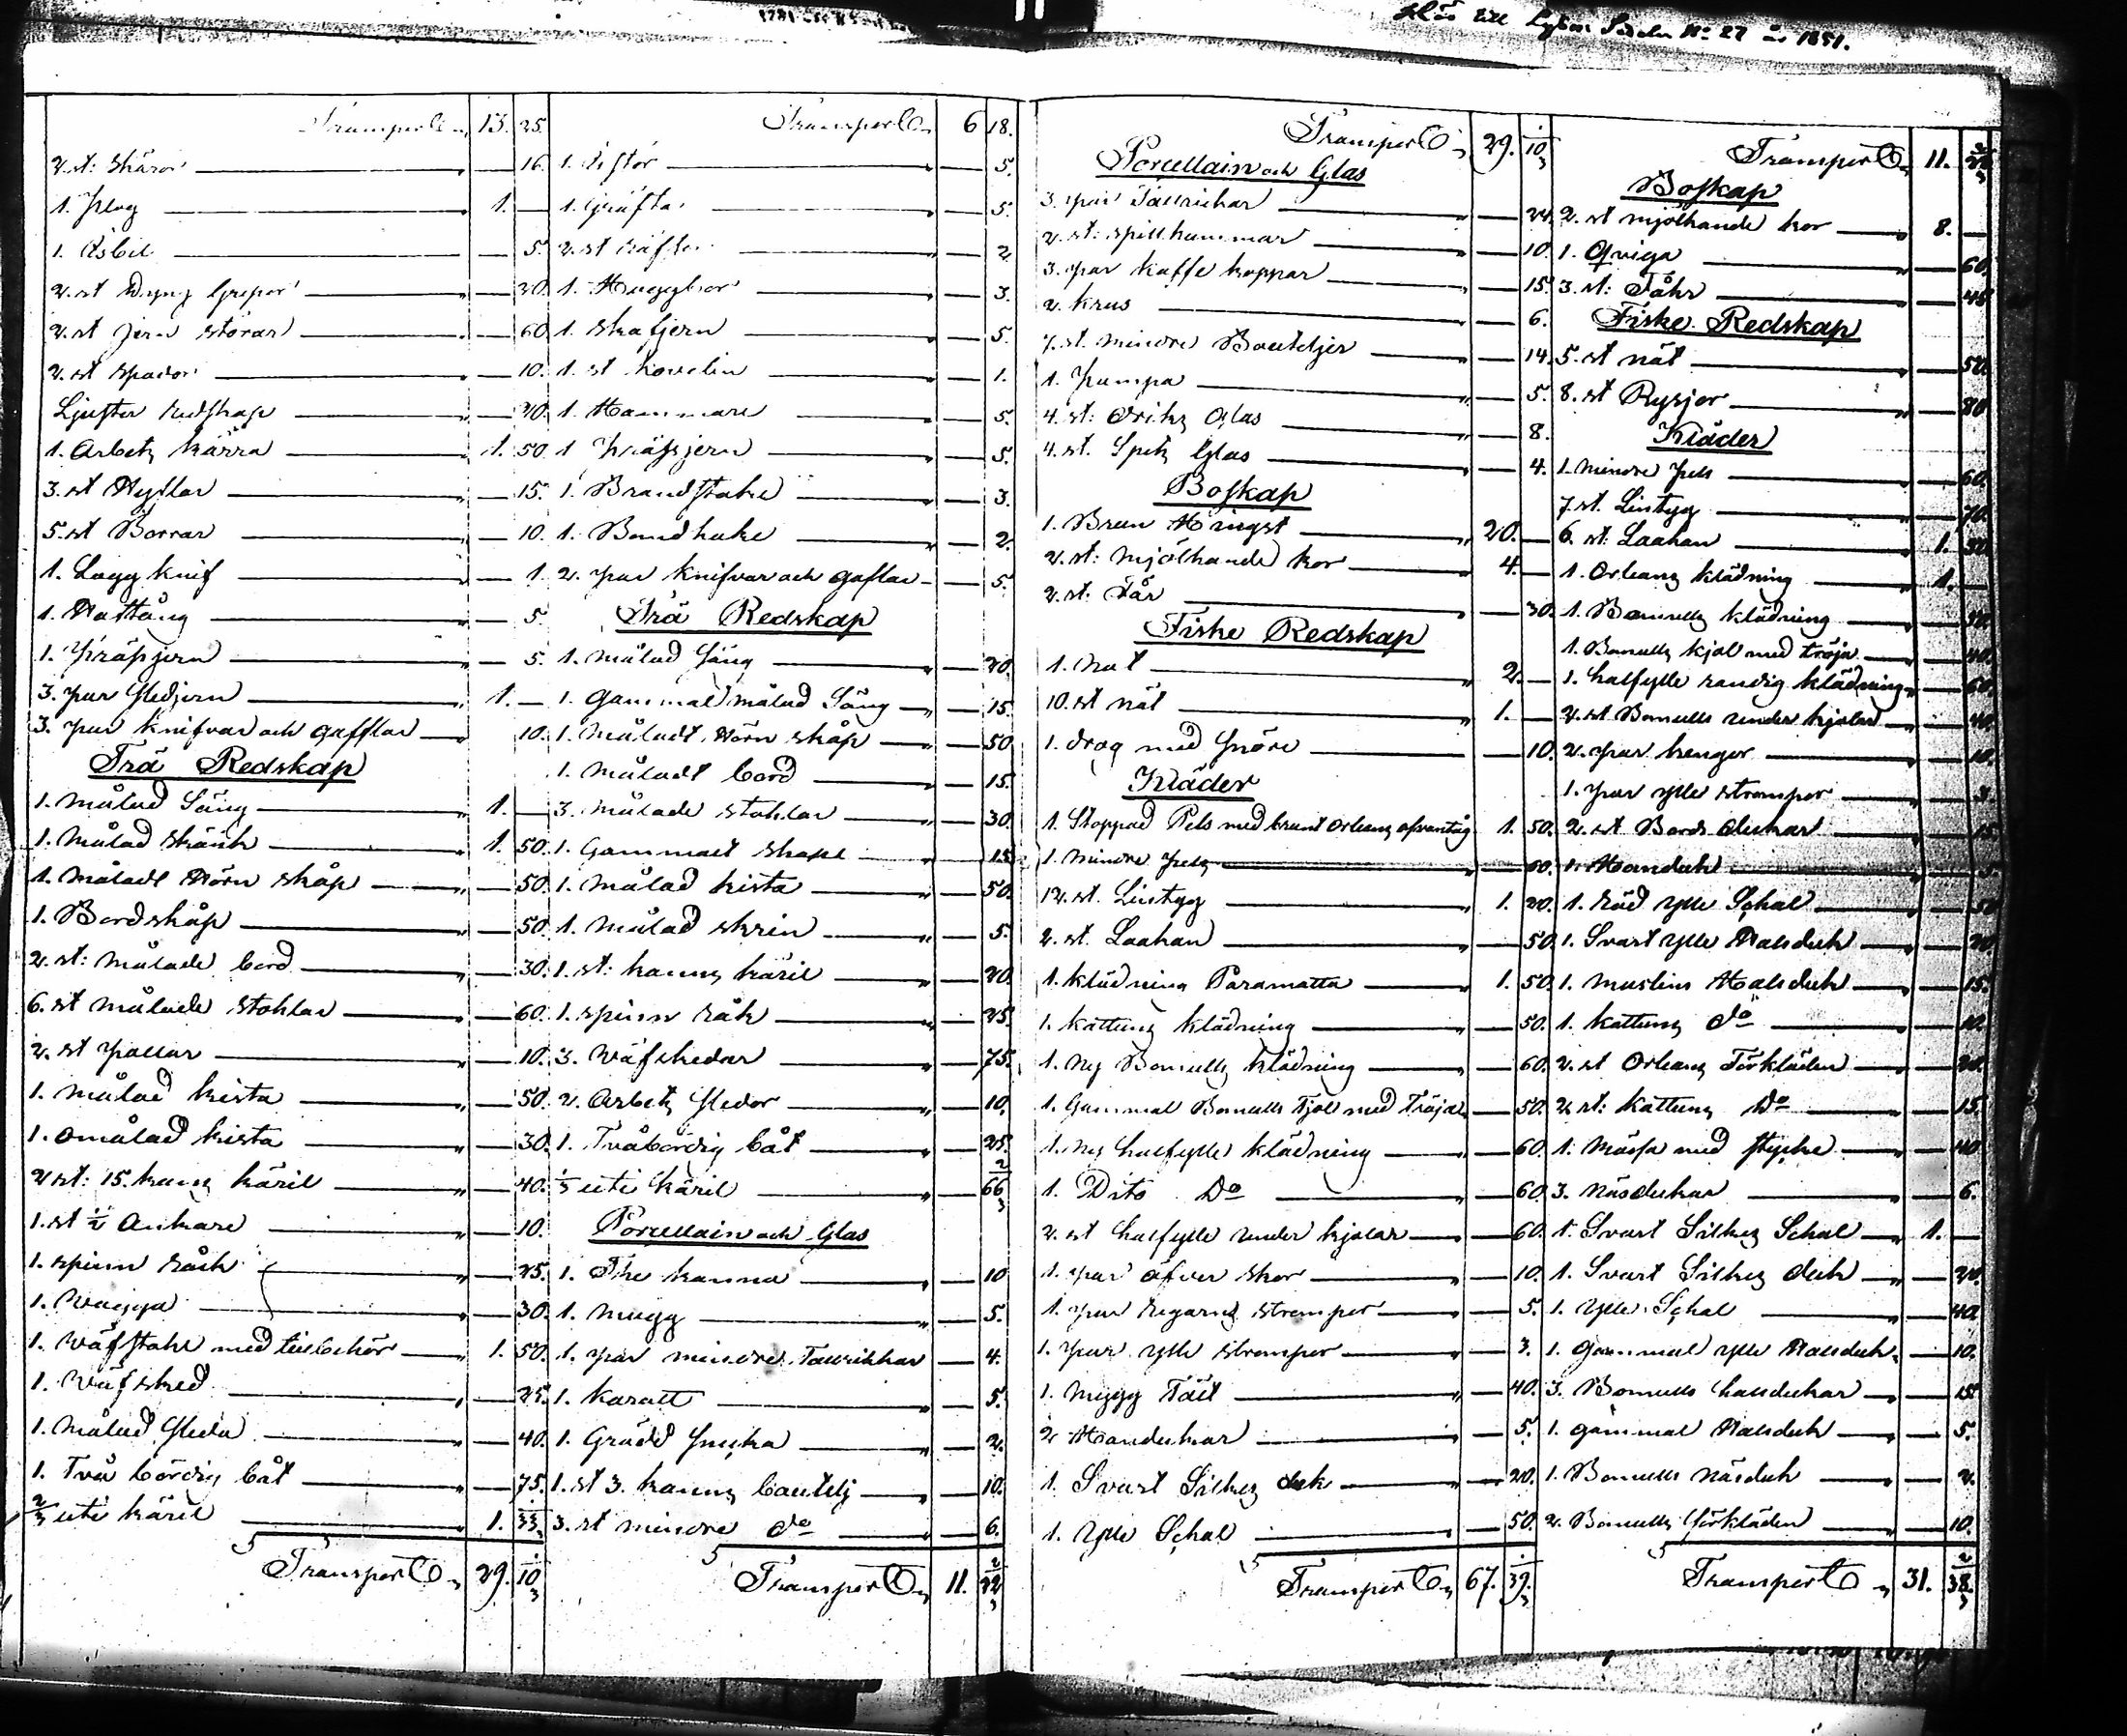 till No 27 år 1851.
Transport 13. 25.
2. st: skäror 16.
1. Plog 1. —
1. Åsbil 5.
2. st Dyng Grepar 20.
2. st jern störar 60
2. st spador 10.
Ljuster redskap 20.
1. Arbets kärra 1. 50
3. st Hyflar 15.
5. st Borrar 10.
1. Lagg knif 1.
1. Haftång 5.
1. 5.
3. par Sledjern 1. —
3. par knifvar och gafflar 10.
Trä Redskap
1. målad Säng 1. —
1. målad skänk 1. 50.
1. måladt Hörn skåp 50.
1. Bordskåp 50.
2. st: målade bord 30.
6. st målade stohlar 60.
2. st pallar 10.
1. målad kista 50.
1. omålad kista 30.
2 st: 15. kans käril 40.
1. st ½ Ankare 10.
1. spinn råck 25.
1. Vagga 30.
1. Väfstohl med tillbehör 1. 50.
1. Väfsked 25.
1. målad Släda 40.
1. Två bördig båt 75.
2/3 uti käril 1. 33 1/3
Transport 29. 10 1/3
Transport 6 18.
1. 5.
1. Gräfta 5.
2. st 2
1. 3.
1. skafjern 5.
1. st 1.
1. Hammare 5.
1 5.
1. Brandstake 3.
1. Bandhake 2.
2. par knifvar och gaflar 5.
Trä Redskap
1. målad Säng 20.
1. Gammal målad Säng 15.
1. måladt Hörn skåp 50
1. måladt bord 15.
3. målade stohlar 30.
1. Gammalt skåpe 15.
1. målad kista 50.
1. målad skrin 5.
1. st: kanns käril 20.
1. spinn råk 25.
3. Väfskedar 75.
2. Arbets Sledor 10.
1. Tvåbördig båt 25.
1/3 uti käril 66 2/3
Porcellain och Glas
1. The kanna 10
1. mugg 5.
1. par mindre Tallrikkar 4.
1. karatt 5.
1. Grädd Snicka 2.
1. st 3. kanns boutelj 10.
3. st mindre do 6.
Transport 11. 22 2/3
Transport 29. 10 1/3
Porcellain och Glas
3. par Tallrickar 24.
2. st: spillkummar 10.
3. par kaffe koppar 15.
2. krus 6.
7. st. mindre Bouteljer 14.
1. Pumpa 5.
4. st: Driks Glas 8.
4. st. Spets Glas 4.
Boskap
1. Brun Hingst 20. —
2. st: mjölkande kor 4. —
2. st: Får 30.
Fiske Redskap
1. Not 2. —
10. st nät 1. —
1. drag med Snöre 10.
Kläder
1. Stoppad Pels med brunt Orleans ofvantåg 1. 50.
1. mindre Pels 60.
12. st. Lintyg 1. 20.
2. st. Laakan 50
1. klädning Paramatta 1. 50
1. kattuns klädning 50.
1. ny Bomulls klädning 60.
1. Gammal Bomulls Kjol med Tröja 50.
1. ny halfylle klädning 60.
1. Dito Do 60
2. st halfylle under kjolar 60.
1. par öfver skor 10.
1. par regarns strumpor 5.
1. par ylle strumpor 3.
1. mygg Tält 40.
2 Handukar 5.
1. Svart Silkes duk 20.
1. Ylle Schal 50.
Transport 67. 39 1/3
Transport 11. 22 2/3
Boskap
2. st mjölkande kor 8. —
1. Qviga 60.
3. st: Fåhr 45
Fiske Redskap
5. st nät 50.
8. st Rysjor 80
Kläder
1. mindre Pels 60.
7. st. Lintyg 70.
6. st: Laakan 1. 50
1. Orleans klädning 1. —
1. Bomulls klädning 50.
1. Bomulls kjol med tröja 40.
1. halfylle randig klädning 60.
2. st. Bomulls under kjolar 40.
2. par kengor 10.
1. par ylle strumpor 3.
2. st Bords dukar 15
1. Handuk 5.
1. röd ylle Schal 50
1. Svart ylle Halsduk 20.
1. muslins Halsduk 15.
1. kattuns do 10.
2. st Orleans Förkläden 20.
2 st: kattuns Do 15.
1. mössa med stycke 40
3. näsdukar 6.
1. Svart Silkes Schal 1. —
1. Svart Silkes duk 20.
1. ylle Schal 40.
1. gammal ylle Halsduk 10.
3. Bomulls halsdukar 15.
1. gammal Halsduk 5.
1. Bomulls näsduk 2.
2. Bomulls förkläden 10.
Transport 31. 38 2/3